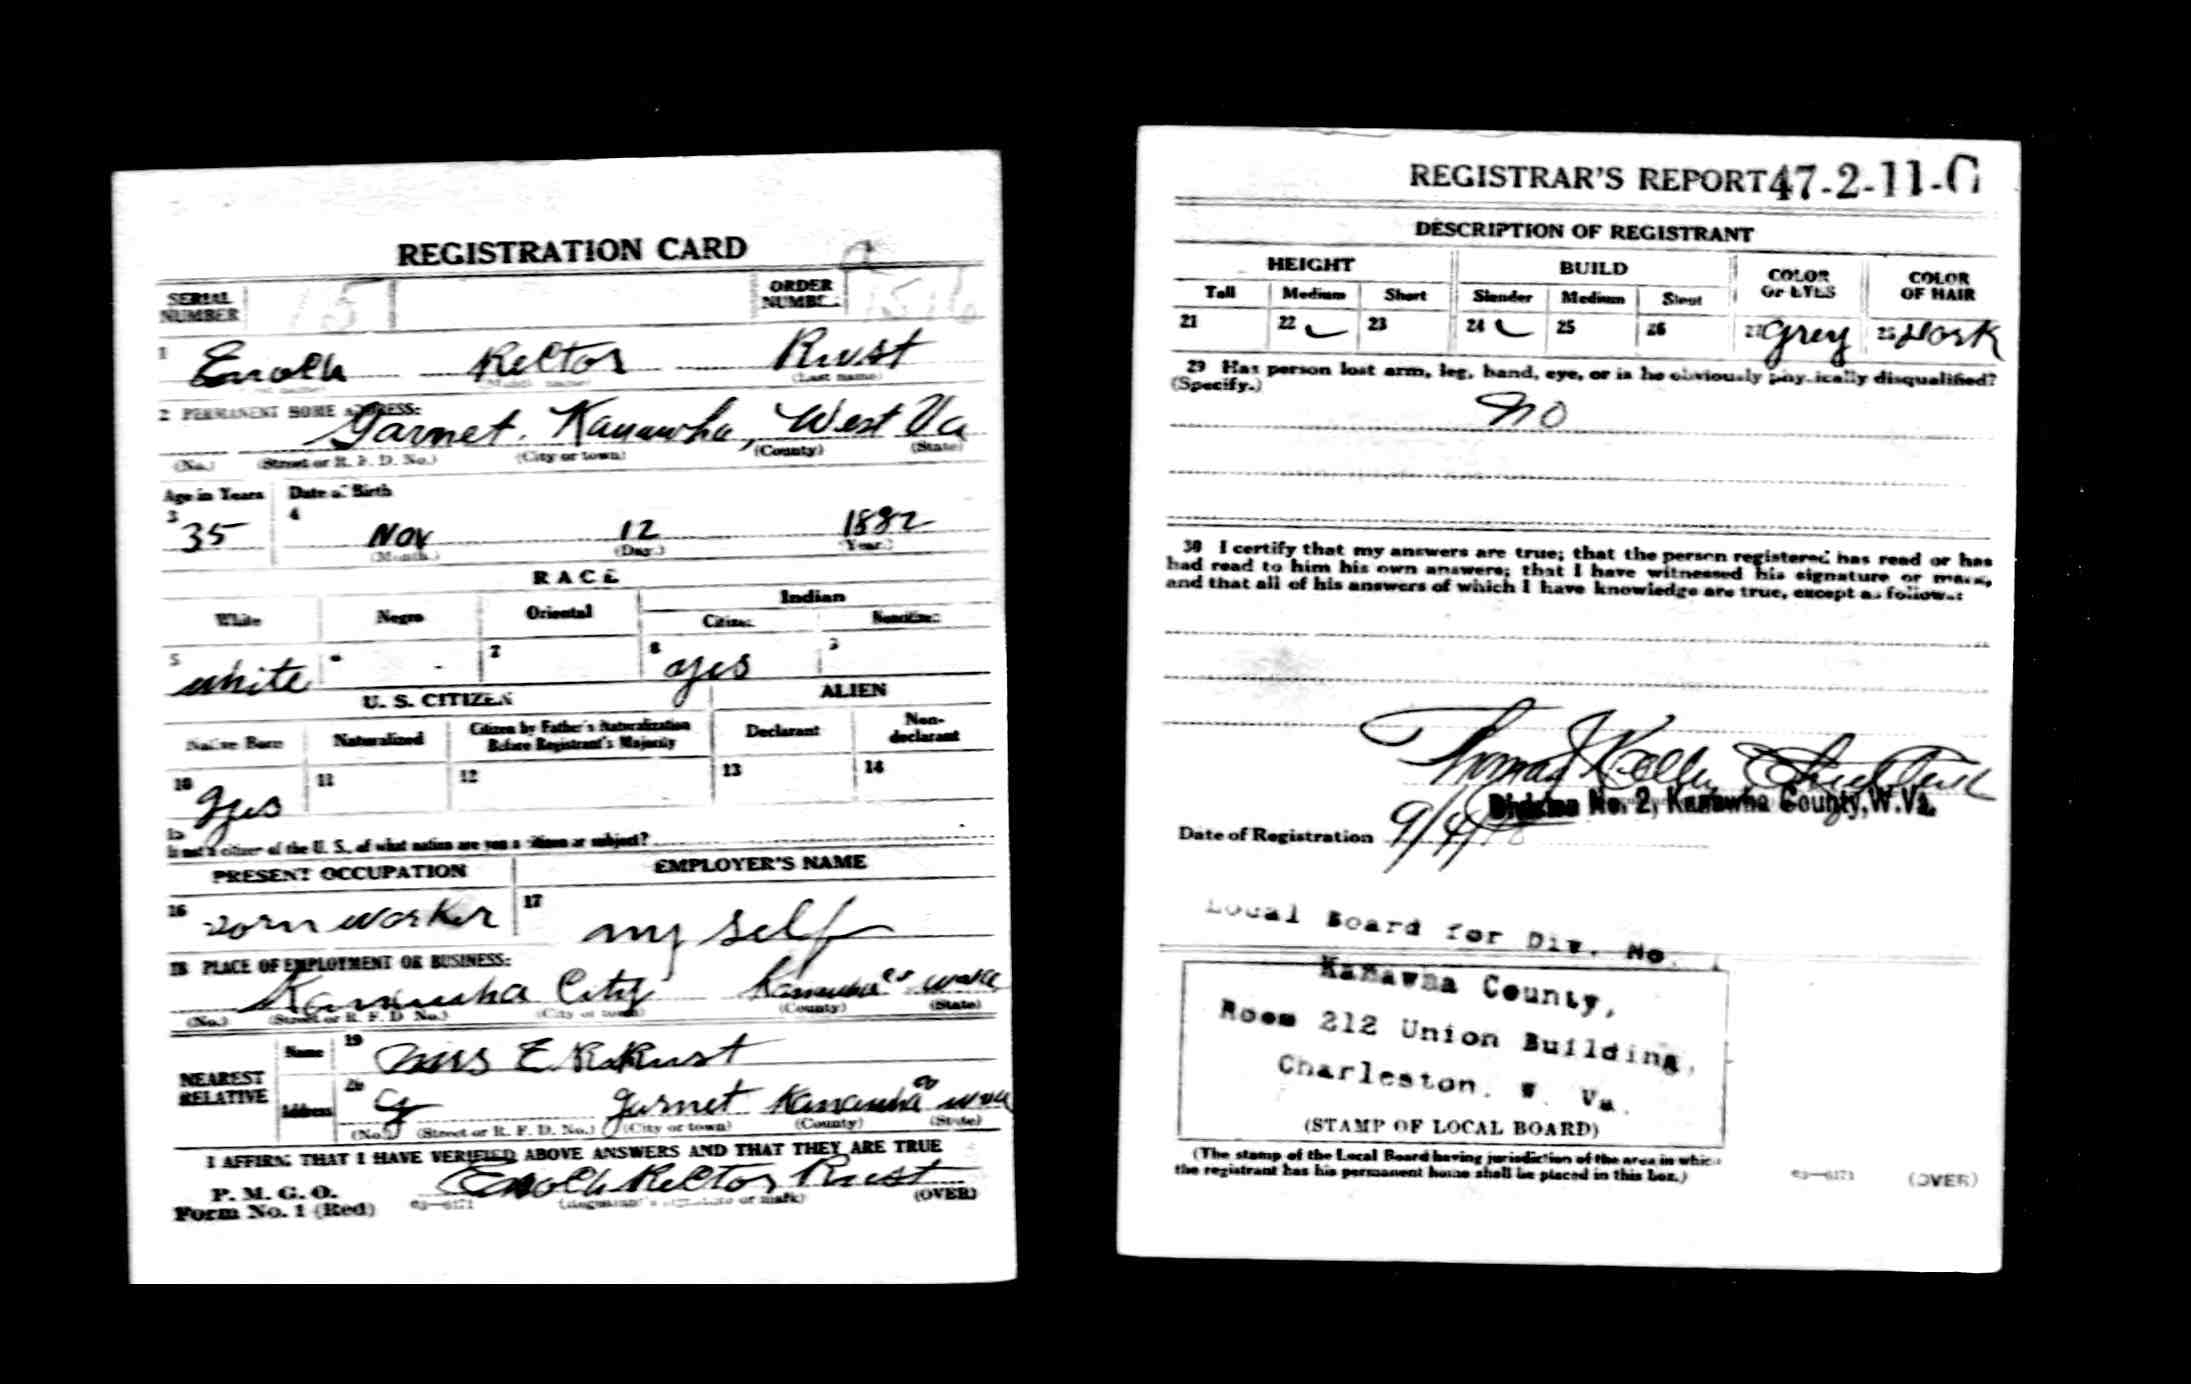 REGISTRATION CARD
SERIAL NUMBER 15 ORDER NUMBER 1516
1 Enoch Rector Rust
(Last name)
2 PERMANENT HOME ADDRESS:
Garnet. Kanawha, West Va
(No.) (Street or R. F. D. No.) (City or town) (County) (State)
Age in Years Date of Birth
3 35 4 Nov 12 1882
(Month.) (Day.) (Year.)
RACE
White Negro Oriental Indian
Citizen Noncitizen
5 white 6 7 8 yes 9
U. S. CITIZEN ALIEN
Native Born Naturalized Citizen by Father's Naturalization Before Registrant's Majority Declarant Non-declarant
10 yes 11 12 13 14
15
If not a citizen of the U. S., of what nation are you a citizen or subject?
PRESENT OCCUPATION EMPLOYER'S NAME
16 worker 17 my self
18 PLACE OF EMPLOYMENT OR BUSINESS:
Kanawha City Kanawha
(No.) (Street or R. F. D. No.) (City or town) (County) (State)
NEAREST RELATIVE
Name 19 Mrs E. R. Rust
Address 20 Garnet Kanawha
(No.) (Street or R. F. D. No.) (City or town) (County) (State)
I AFFIRM THAT I HAVE VERIFIED ABOVE ANSWERS AND THAT THEY ARE TRUE
P. M. G. O.
Form No. 1 (Red) 03—6171 Enoch Rector Rust
(Registrant's signature or mark) (OVER)
REGISTRAR'S REPORT 47-2-11-C
DESCRIPTION OF REGISTRANT
HEIGHT BUILD COLOR OF EYES COLOR OF HAIR
Tall Medium Short Slender Medium Stout
21 22 ✓ 23 24 ✓ 25 26 27 Grey 28 Dark
29 Has person lost arm, leg, hand, eye, or is he obviously physically disqualified?
(Specify.)
No
30 I certify that my answers are true; that the person registered has read or has
had read to him his own answers; that I have witnessed his signature or mark,
and that all of his answers of which I have knowledge are true, except as follows:
Thomas
Division No. 2, Kanawha County, W. Va.
Date of Registration 9/4/18
Local Board for Div. No.
Kanawha County,
Room 212 Union Building,
Charleston, W. Va.
(STAMP OF LOCAL BOARD)
(The stamp of the Local Board having jurisdiction of the area in which
the registrant has his permanent home shall be placed in this box.)
03—6171 (OVER)